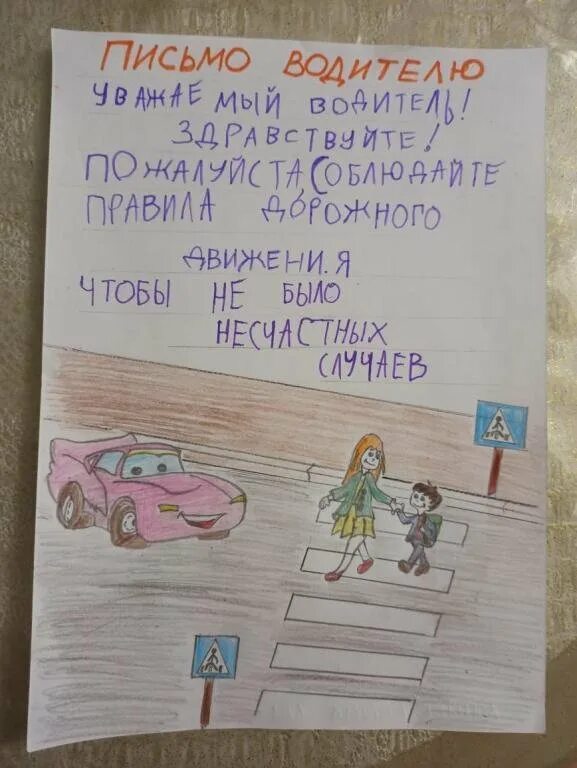 ПИСЬМО ВОДИТЕЛЮ
УВАЖАЕМЫЙ ВОДИТЕЛЬ!
ЗДРАВСТВУЙТЕ!
ПОЖАЛУЙСТА, СОБЛЮДАЙТЕ
ПРАВИЛА ДОРОЖНОГО
ДВИЖЕНИ.Я
ЧТОБЫ НЕ БЫЛО
НЕСЧАСТНЫХ
СЛУЧАЕВ